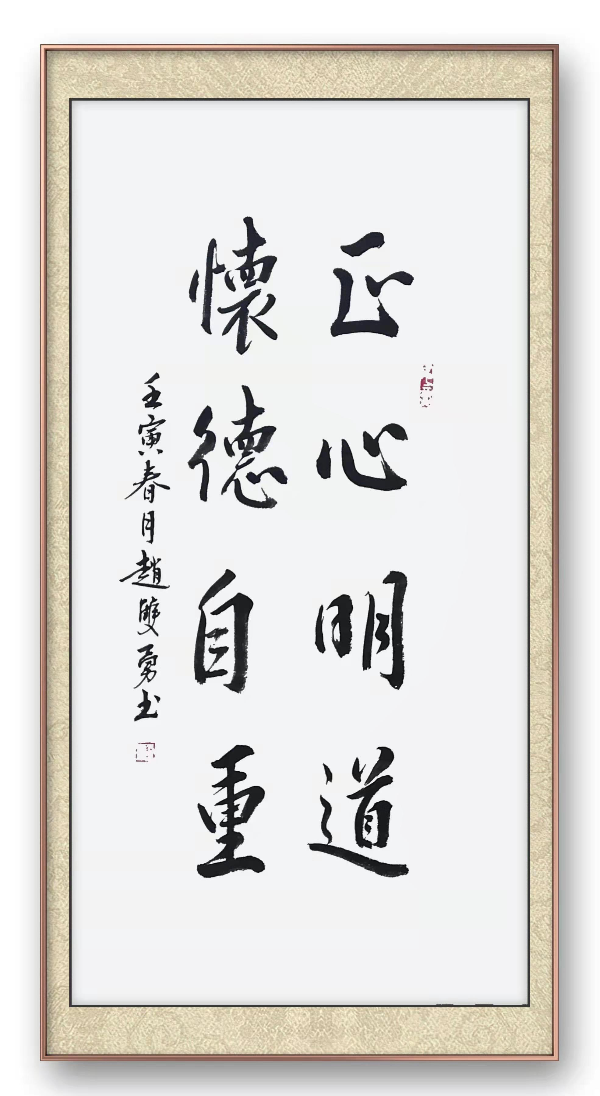 正心明道
懷德自重
壬寅春月趙雙勇书